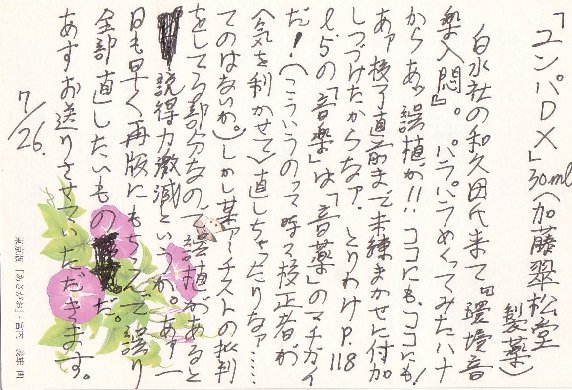 「ユンパDX」30ml(加藤翠松堂
製薬)
白水社の和久田氏来て『環境音
楽入悶』。パラパラめくってみたハナ
からあゝ誤植が!!ココにも。ココにも!
あァ校了直前まで未練まかせに付加
しつづけたからなァ。とりわけP.118
ℓ5の「音楽」は「音薬」のマチガイ
だ!(こういうのって時々校正者が
〈気を利かせて〉直しちゃったりなァ……
てのはないか。)しかし某アーチストの批判
をしてる部分なので誤植があると
説得力激減というか。あァ一
日も早く再版にもちこんで誤り
全部直したいもの だ。
あすお送りさせていただきます。
7/26.
東京版「あさがお」・宮内